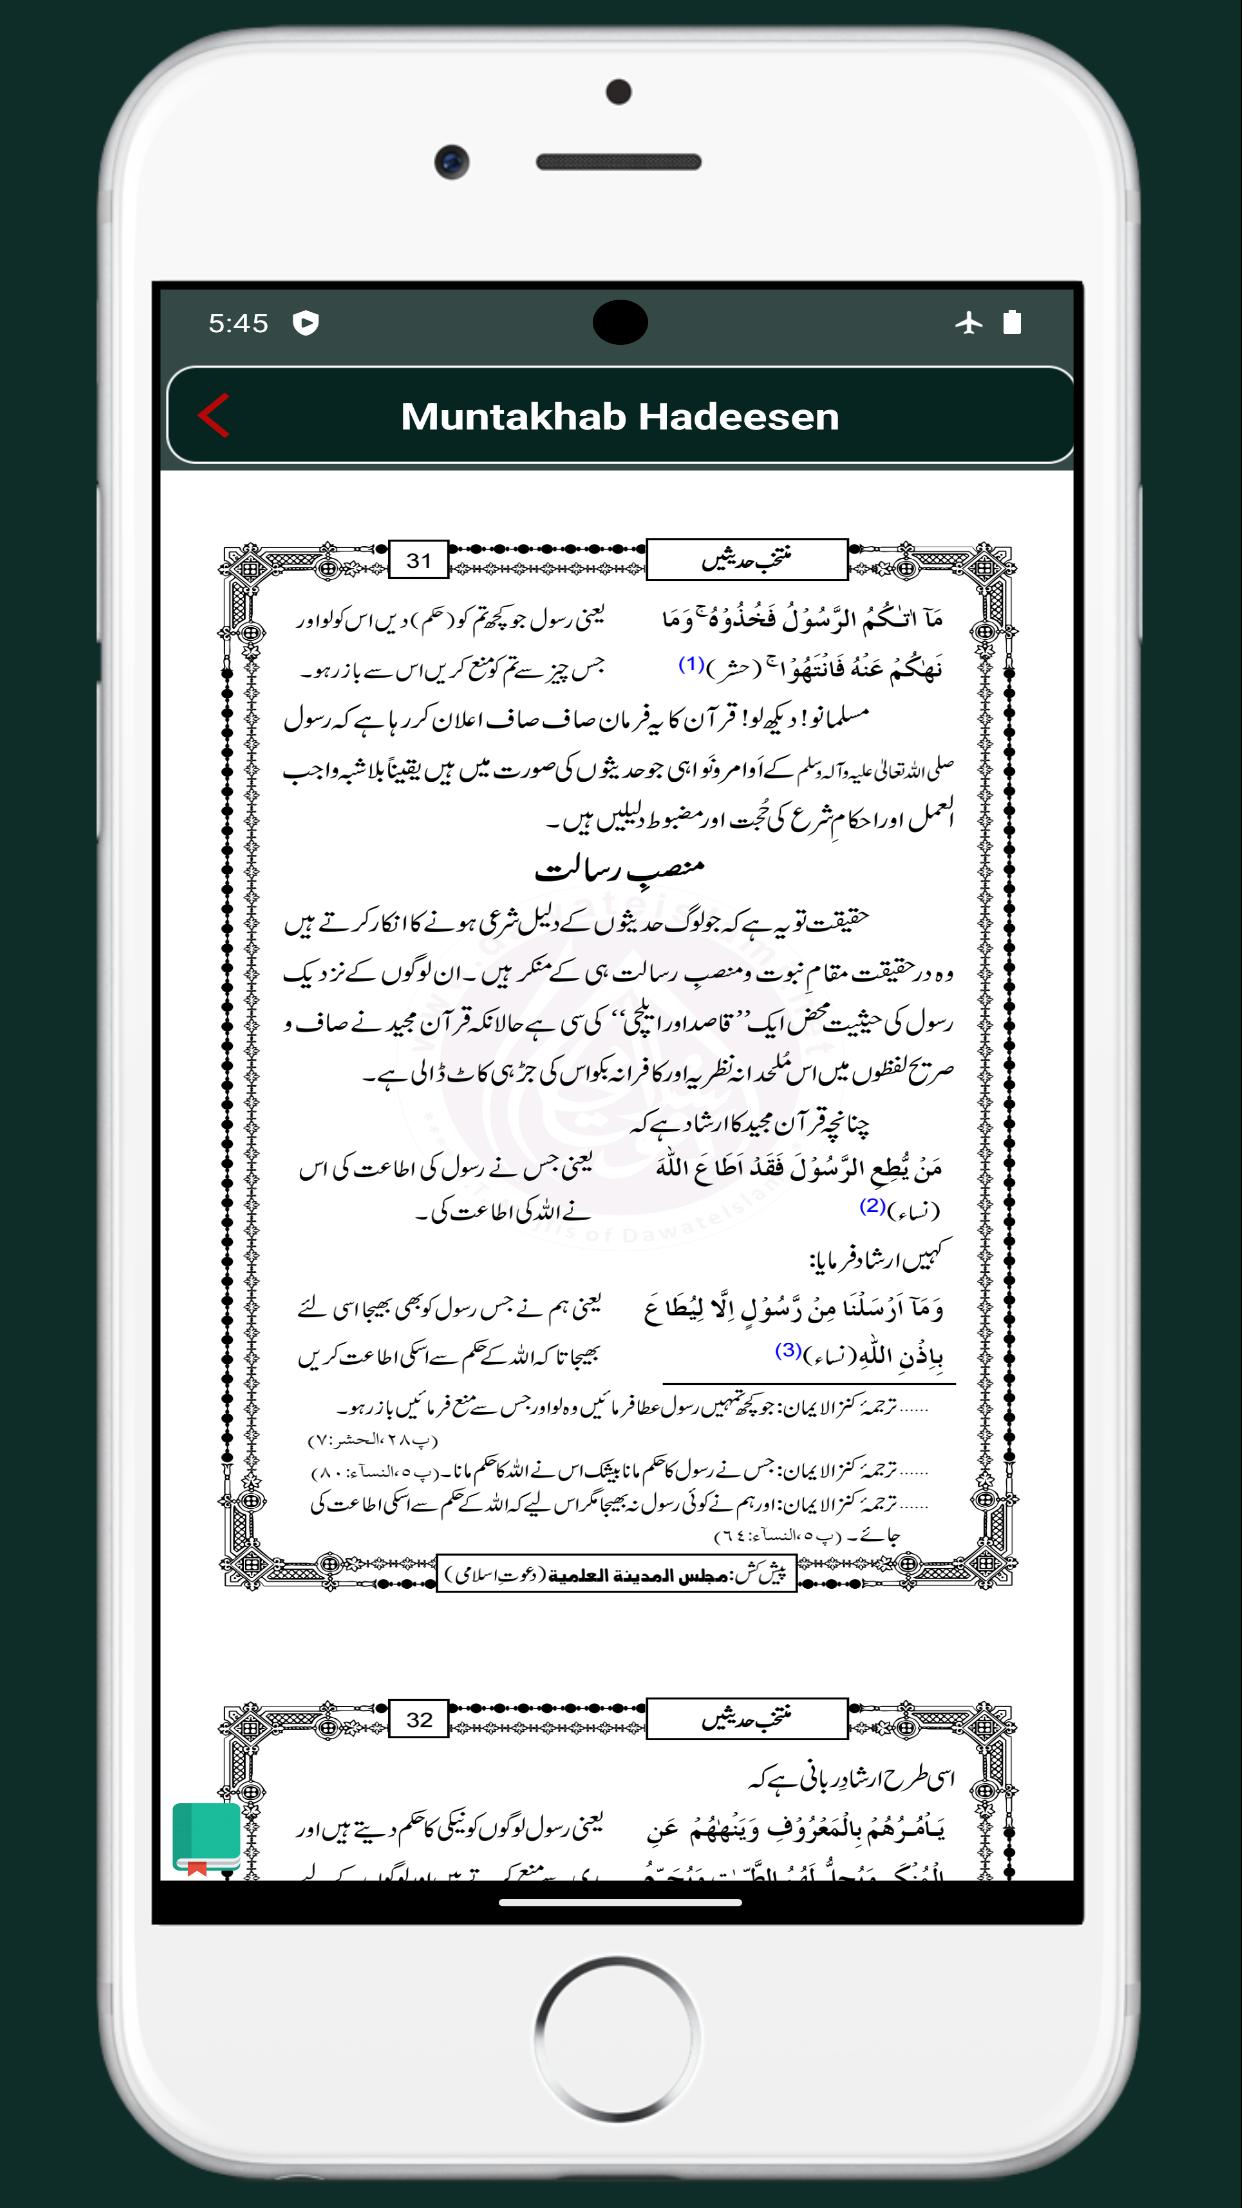 5:45
Muntakhab Hadeesen
منتخب حدیثیں
31
مَآ اٰتٰىكُمُ الرَّسُوْلُ فَخُذُوْهُ ۚ وَمَا
نَهٰىكُمْ عَنْهُ فَانْتَهُوْا ۚ (حشر)(1)
یعنی رسول جو کچھ تم کو (حکم) دیں اس کو لو اور
جس چیز سے تم کو منع کریں اس سے باز رہو۔
مسلمانو! دیکھ لو! قرآن کا یہ فرمان صاف صاف اعلان کررہا ہے کہ رسول
صلی اللہ تعالیٰ علیہ وآلہ وسلم کے اَوامر ونَواہی جو حدیثوں کی صورت میں ہیں یقیناً بلاشبہ واجب
العمل اور احکامِ شرع کی حُجت اور مضبوط دلیلیں ہیں۔
منصبِ رسالت
حقیقت تو یہ ہے کہ جو لوگ حدیثوں کے دلیل شرعی ہونے کا انکار کرتے ہیں
وہ درحقیقت مقامِ نبوت و منصبِ رسالت ہی کے منکر ہیں ۔ ان لوگوں کے نزدیک
رسول کی حیثیت محض ایک ’’قاصد اور ایلچی‘‘ کی سی ہے حالانکہ قرآن مجید نے صاف و
صریح لفظوں میں اس مُلحدانہ نظریہ اور کافرانہ بکواس کی جڑ ہی کاٹ ڈالی ہے۔
چنانچہ قرآن مجید کا ارشاد ہے کہ
مَنْ يُّطِعِ الرَّسُوْلَ فَقَدْ اَطَاعَ اللّٰهَ
(نساء)(2)
یعنی جس نے رسول کی اطاعت کی اس
نے اللہ کی اطاعت کی۔
کہیں ارشاد فرمایا:
وَمَآ اَرْسَلْنَا مِنْ رَّسُوْلٍ اِلَّا لِيُطَاعَ
بِاِذْنِ اللّٰهِ (نساء)(3)
یعنی ہم نے جس رسول کو بھی بھیجا اسی لئے
بھیجا تاکہ اللہ کے حکم سے اسکی اطاعت کریں
......ترجمۂ کنز الایمان: جو کچھ تمہیں رسول عطا فرمائیں وہ لو اور جس سے منع فرمائیں باز رہو۔
(پ۲۸،الحشر:۷)
......ترجمۂ کنز الایمان: جس نے رسول کا حکم مانا بیشک اس نے اللہ کا حکم مانا۔(پ۵،النسآء:۸۰)
......ترجمۂ کنز الایمان: اور ہم نے کوئی رسول نہ بھیجا مگر اس لیے کہ اللہ کے حکم سے اسکی اطاعت کی
جائے۔ (پ۵،النسآء:٦٤)
پیش کش: مجلس المدینة العلمیة (دعوتِ اسلامی)
منتخب حدیثیں
32
اسی طرح ارشادِ ربانی ہے کہ
يَاْمُرُهُمْ بِالْمَعْرُوْفِ وَيَنْهٰهُمْ عَنِ
یعنی رسول لوگوں کو نیکی کا حکم دیتے ہیں اور